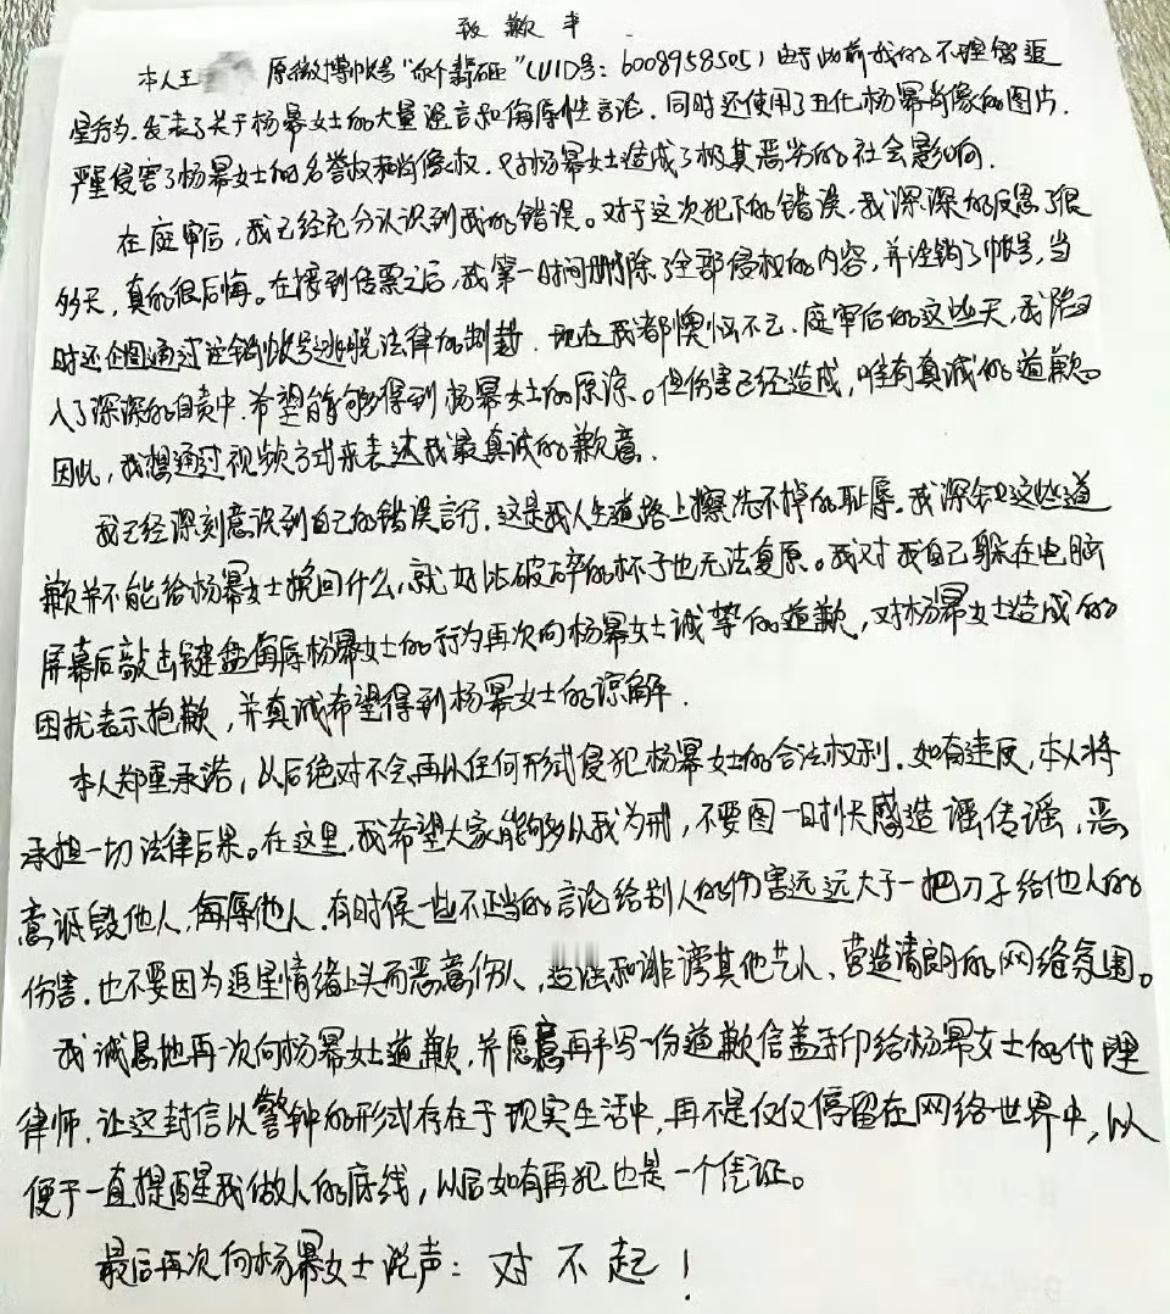 致歉书
本人王 原微博帐号“ ”（UID号：6008958505）由于此前我的不理智追
星行为，发表了关于杨幂女士的大量谣言和侮辱性言论，同时还使用了丑化杨幂肖像的图片，
严重侵害了杨幂女士的名誉权和肖像权，对杨幂女士造成了极其恶劣的社会影响．
在庭审后，我已经充分认识到我的错误。对于这次犯下的错误，我深深的反思了很
多天，真的很后悔。在接到传票之后，我第一时间删除了全部侵权的内容，并注销了帐号，当
时还企图通过注销帐号逃脱法律的制裁．现在我都懊恼不已．庭审后的这些天，我陷
入了深深的自责中．希望能够得到杨幂女士的原谅。但伤害已经造成，唯有真诚的道歉。
因此，我想通过视频方式来表达我最真诚的歉意．
我已经深刻意识到自己的错误言行．这是我人生道路上擦洗不掉的耻辱．我深知这些道
歉并不能给杨幂女士挽回什么，就好比破碎的杯子也无法复原。我对我自己躲在电脑
屏幕后敲击键盘侮辱杨幂女士的行为再次向杨幂女士诚挚的道歉，对杨幂女士造成的
困扰表示抱歉，并真诚希望得到杨幂女士的谅解．
本人郑重承诺，以后绝对不会再以任何形式侵犯杨幂女士的合法权利．如有违反，本人将
承担一切法律后果。在这里，我希望大家能够以我为刑，不要图一时快感造谣传谣，恶
意诋毁他人，侮辱他人．有时候一些不正当的言论给别人的伤害远远大于一把刀子给他人的
伤害．也不要因为追星情绪上头而恶意伤人， 和诽谤其他艺人、营造清朗的网络氛围。
我诚恳地再一次向杨幂女士道歉，并愿意再手写一份道歉信盖手印给杨幂女士的代理
律师．让这封信以警钟的形式存在于现实生活中，再不是仅仅停留在网络世界中，以
便于一直提醒我做人的底线，以后如有再犯也是一个凭证。
最后再次向杨幂女士说声：对不起！